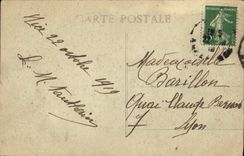 CARTE POSTALE
Nice 22 octobre 1919
Mademoiselle
Barillon
Quai Claude Bernard
7
Lyon